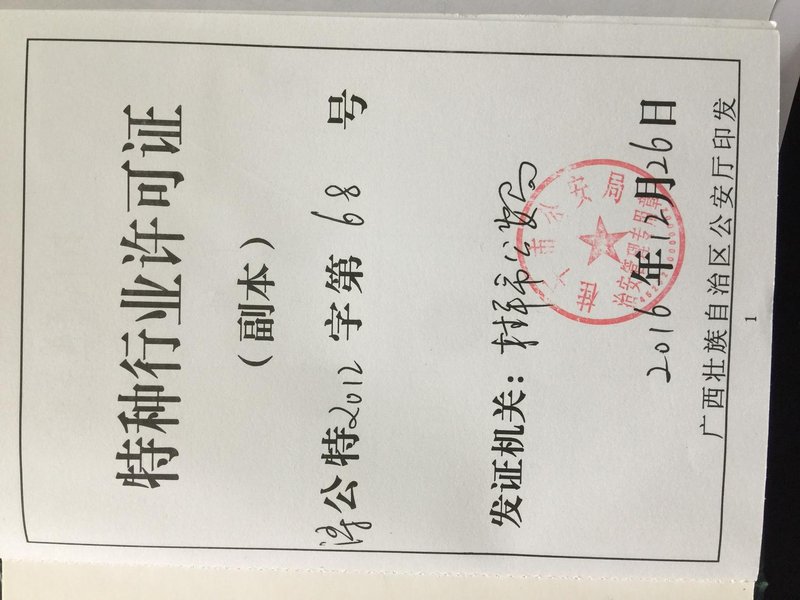 特种行业许可证
（副本）
浔公特2012字第68号
发证机关：桂平市公安局
桂平市公安局
治安管理专用章
2016年12月26日
广西壮族自治区公安厅印发
1